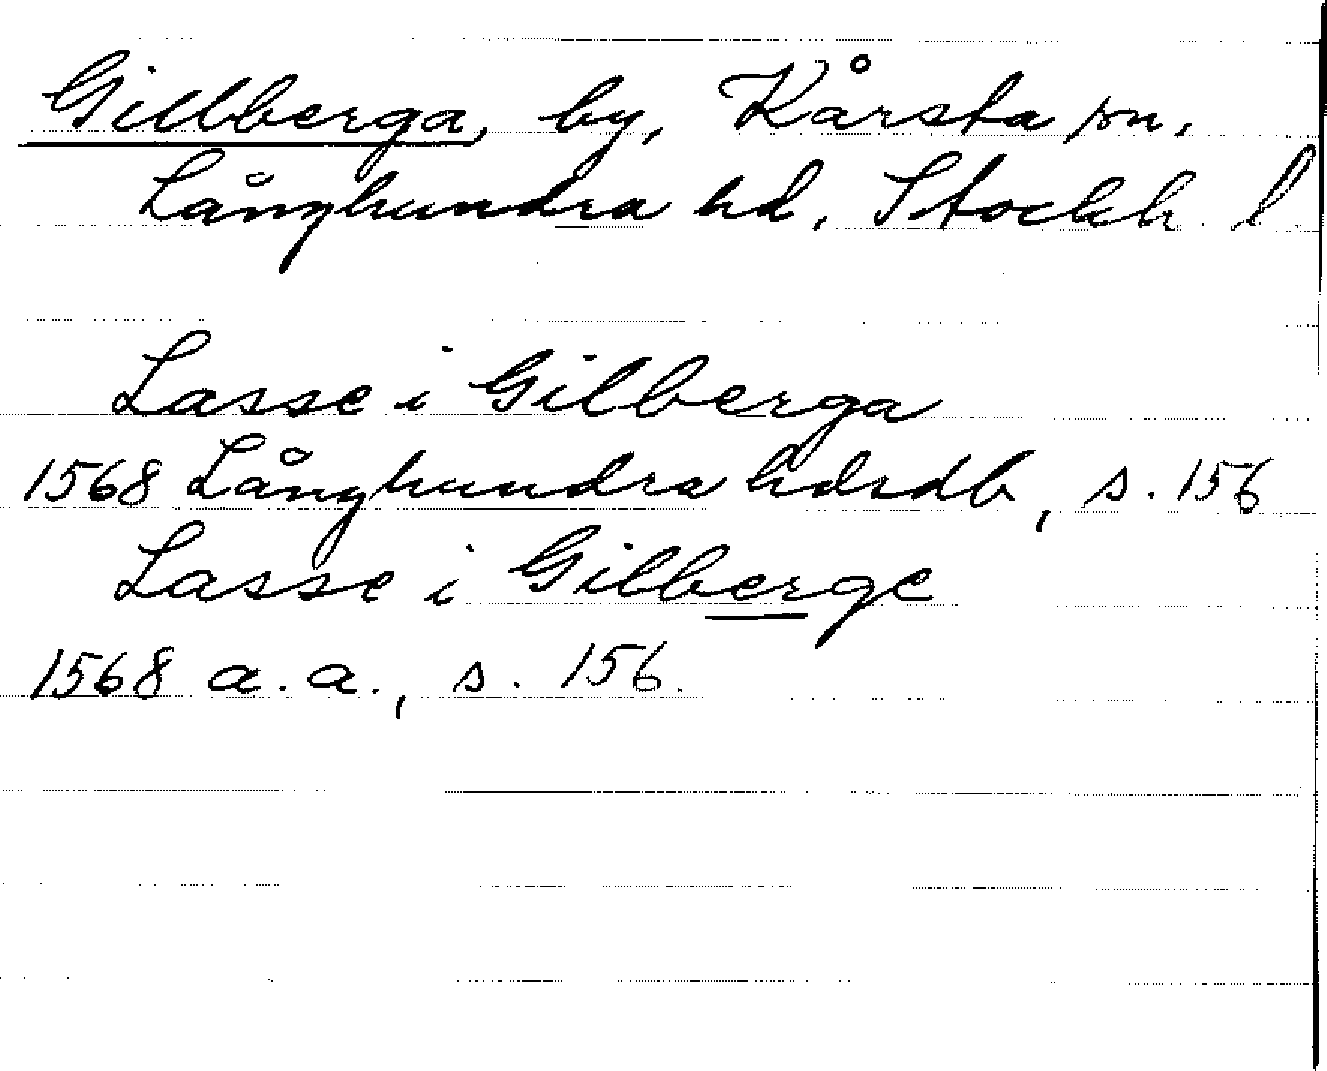 Gillberga, by, Kårsta sn.
Långhundra hd. Stockh. l
Lasse i Gilberga
1568 Långhundra hdrdb, s. 156
Lasse i Gilberge
1568 a. a., s. 156.